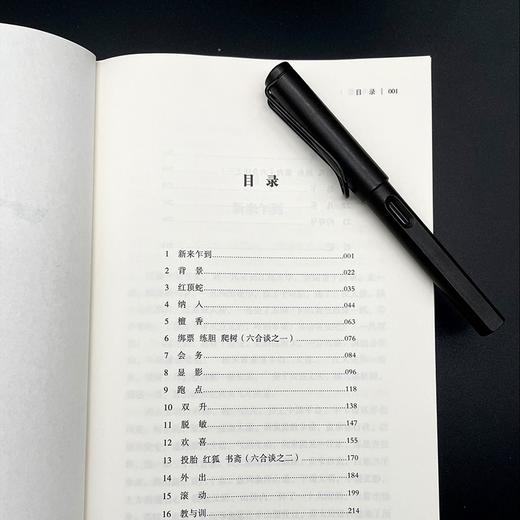 目 录 | 001
目 录
1 新来乍到 001
2 背 景 022
3 红顶蛇 035
4 纳 入 044
5 檀 香 063
6 绑票 练胆 爬树（六合谈之一） 076
7 会 务 084
8 显 影 096
9 跑 点 118
10 双 升 138
11 脱 敏 147
12 欢 喜 155
13 投胎 红狐 书斋（六合谈之二） 170
14 外 出 184
15 滚 动 199
16 教与训 214